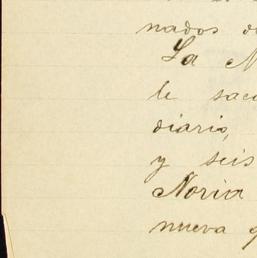 nados d
La N
le sac
diario,
y seis
Noria
nueva q